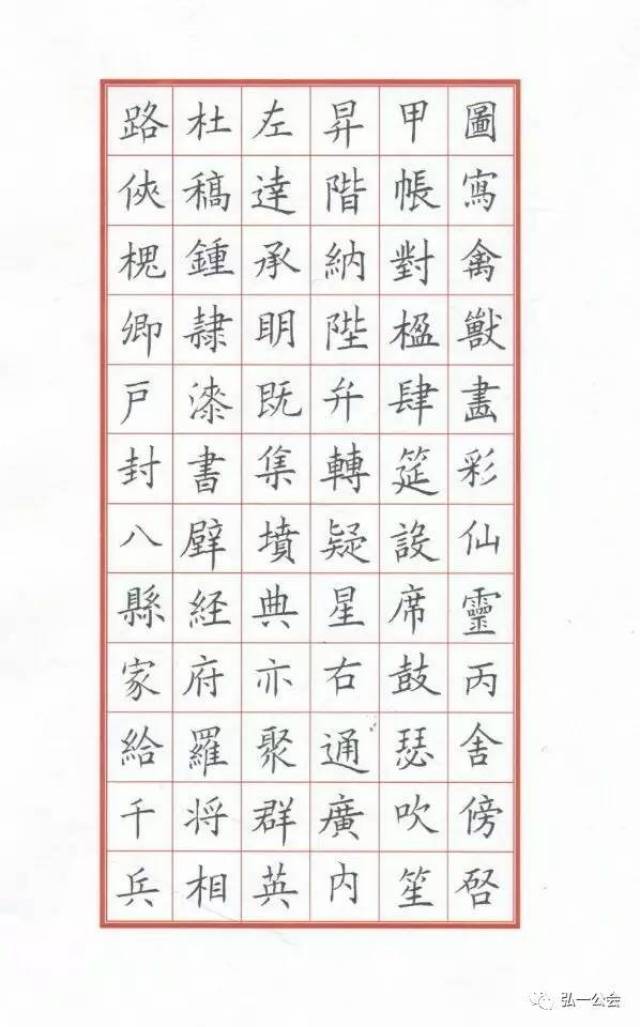 圖寫禽獸畫彩仙靈丙舍傍啓
甲帳對楹肆筵設席鼓瑟吹笙
昇階納陛弁轉疑星右通廣內
左達承明既集墳典亦聚群英
杜稿鍾隸漆書壁経府羅将相
路俠槐卿戶封八縣家給千兵
弘一公会